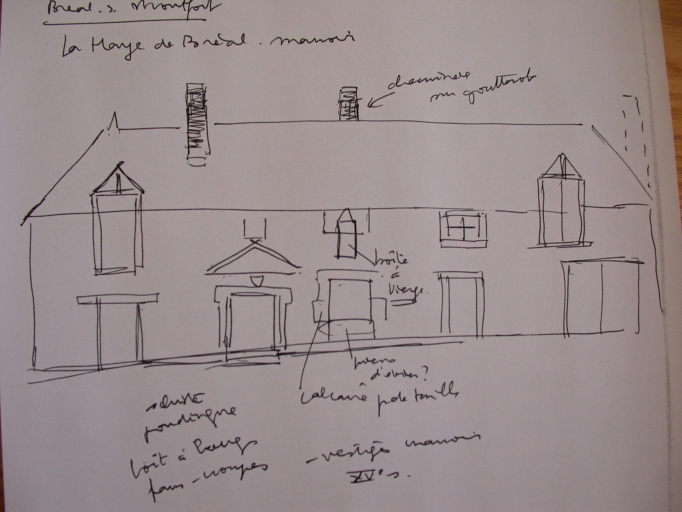 Bréal. s. Montfort
La Haye de Bréal. manoir
cheminée
sur gouttereau
boîte
à
vierge
pierre
d'évier?
calcaire pde taille
schiste
poudingue
toit à longs
pans - croupes
- vestiges manoir
XV°s.